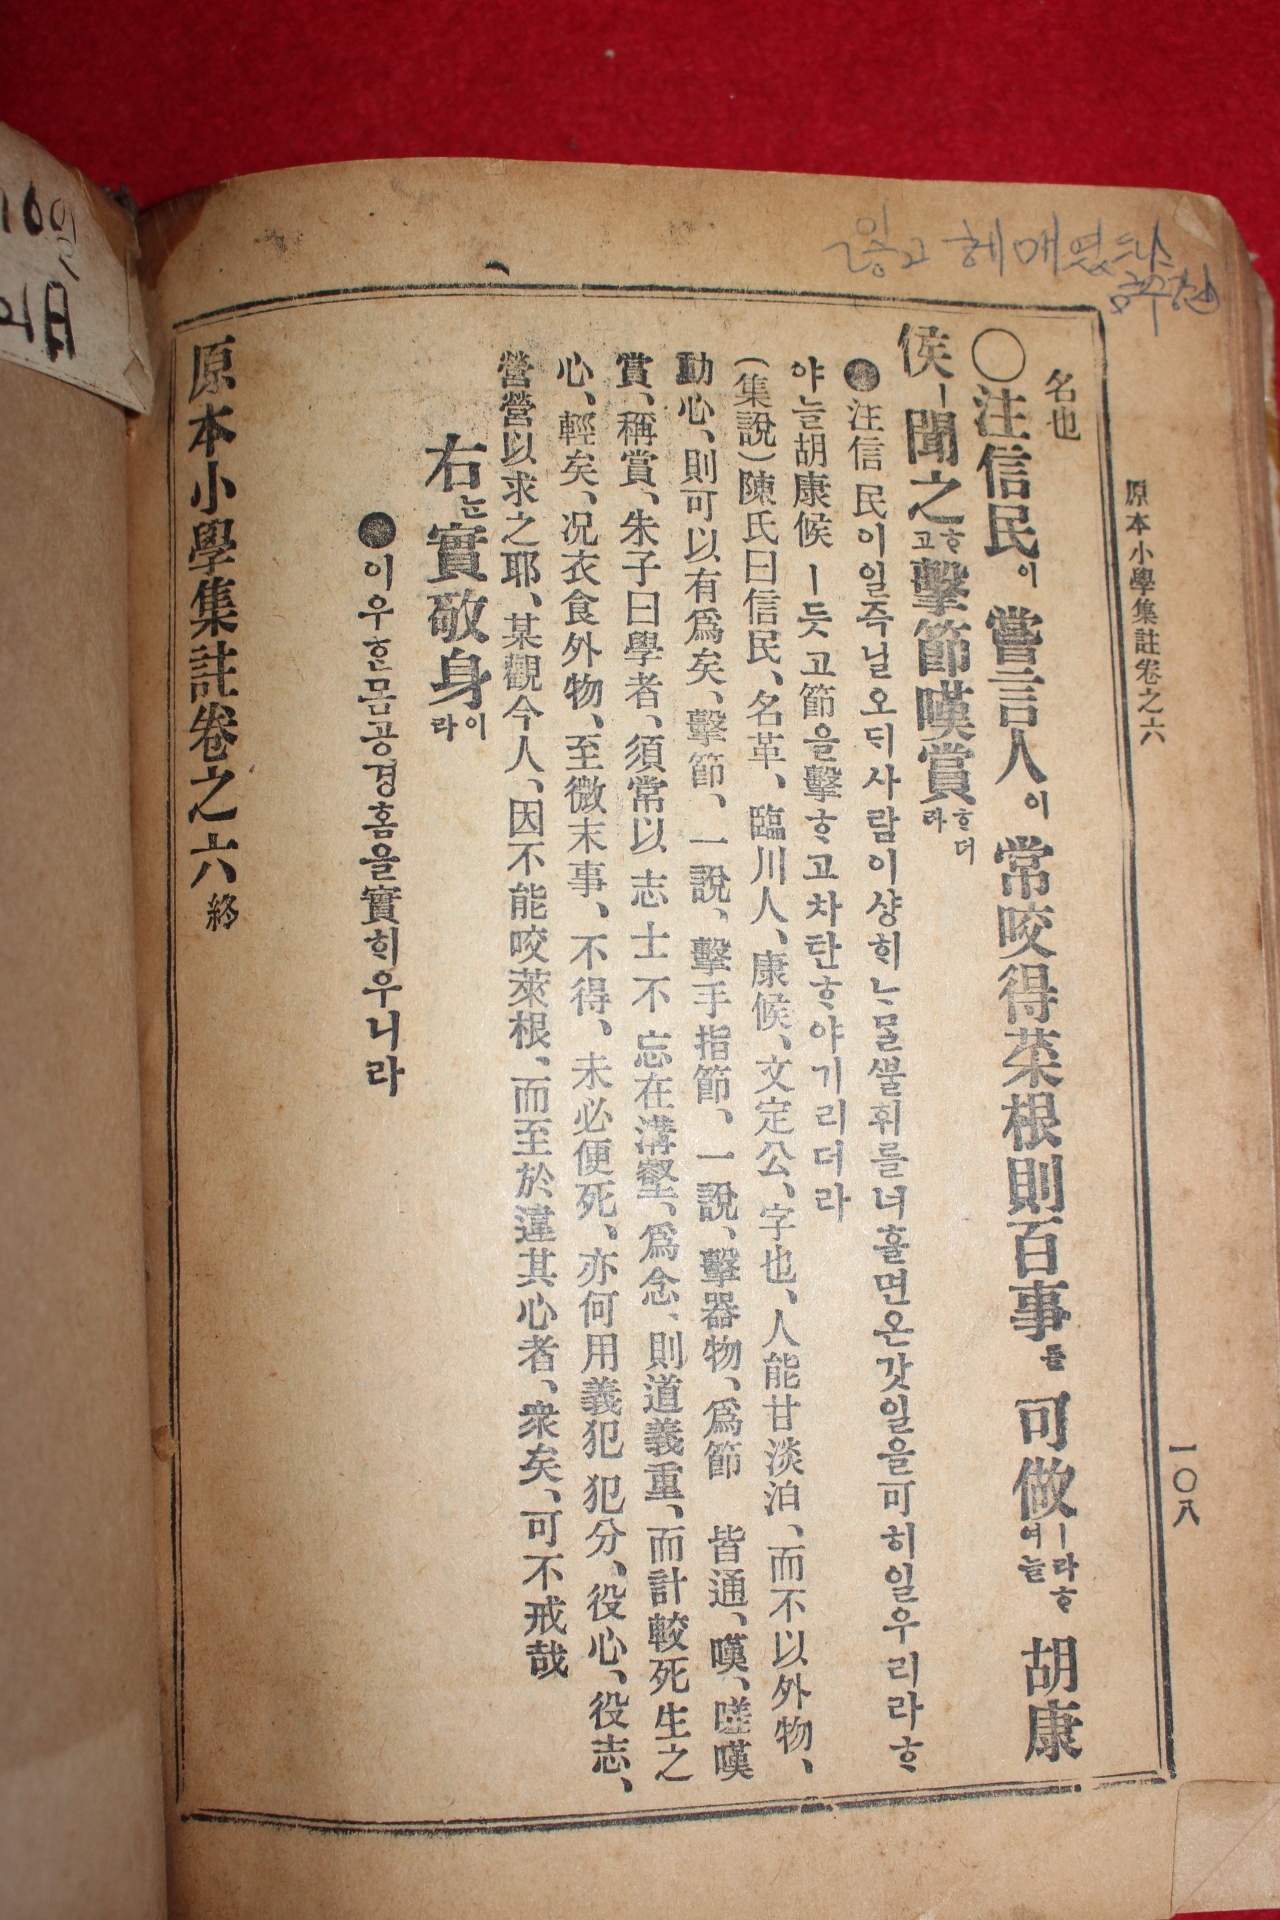 原本小學集註卷之六
一〇八
名也
○注信民이 嘗言人이 常咬得菜根則百事를 可做ㅣ라ᄒᆞ여늘 胡康
侯ㅣ聞之ᄒᆞ고擊節嘆賞ᄒᆞ더라
●注信民이일즉닐오ᄃᆡ사람이샹ᄒᆡᄂᆞ믈ᄲᅮᆯ휘를너흘면온갓일을可히일우리라ᄒᆞ
야늘胡康候ㅣ듯고節을擊ᄒᆞ고차탄ᄒᆞ야기리더라
(集說)陳氏曰信民、名革、臨川人、康候、文定公、字也、人能甘淡泊、而不以外物、
動心、則可以有爲矣、擊節、一說、擊手指節、一說、擊器物、爲節 皆通、嘆、嗟嘆
賞、稱賞、朱子曰學者、須常以 志士不 忘在溝壑、爲念、則道義重、而計較死生之
心、輕矣、况衣食外物、至微末事、不得、未必便死、亦何用義犯 犯分、役心、役志、
營營以求之耶、某觀今人、因不能咬菜根、而至於違其心者、衆矣、可不戒哉
右ᄂᆞᆫ實敬身이라
●이우ᄒᆞᆫ몸공경홈을實ᄒᆡ우니라
原本小學集註卷之六 終